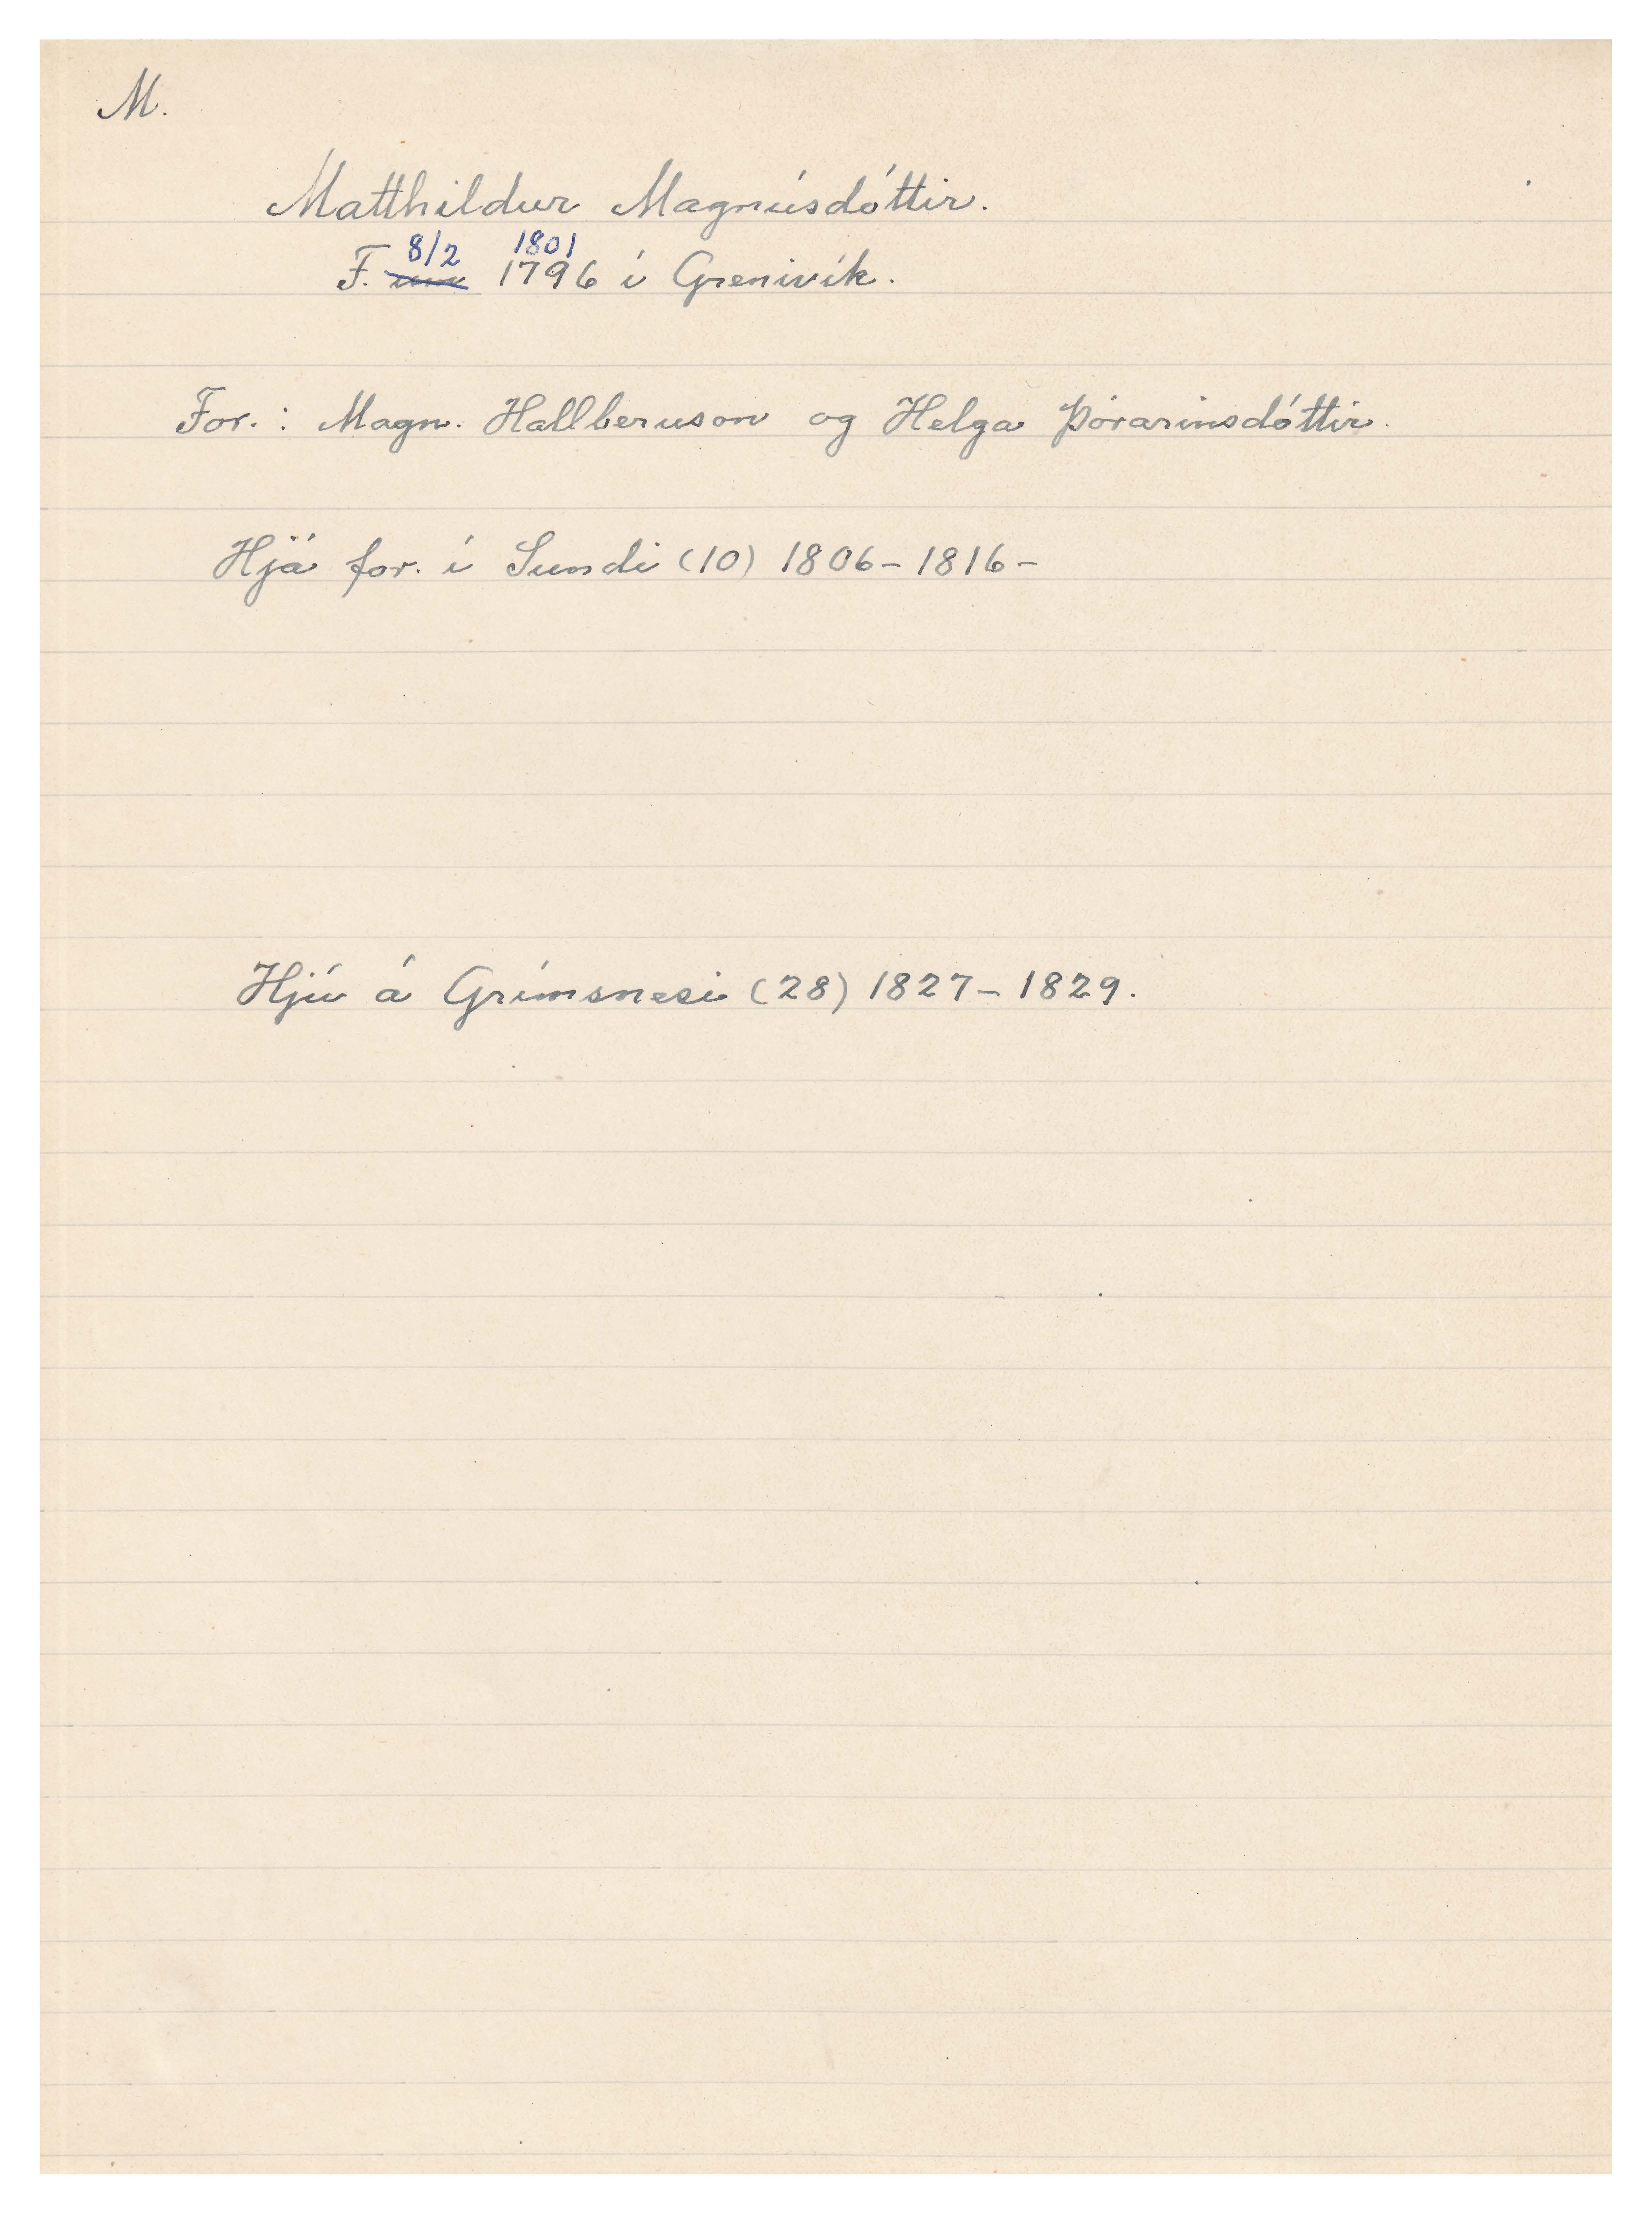 M.
Matthildur Magnúsdóttir.
8/2 1801
F. um 1796 í Grenivík.
For.: Magn. Hallberuson og Helga Þórarinsdóttir.
Hjá for. í Sundi (10) 1806-1816-
Hjú á Grímsnesi (28) 1827-1829.